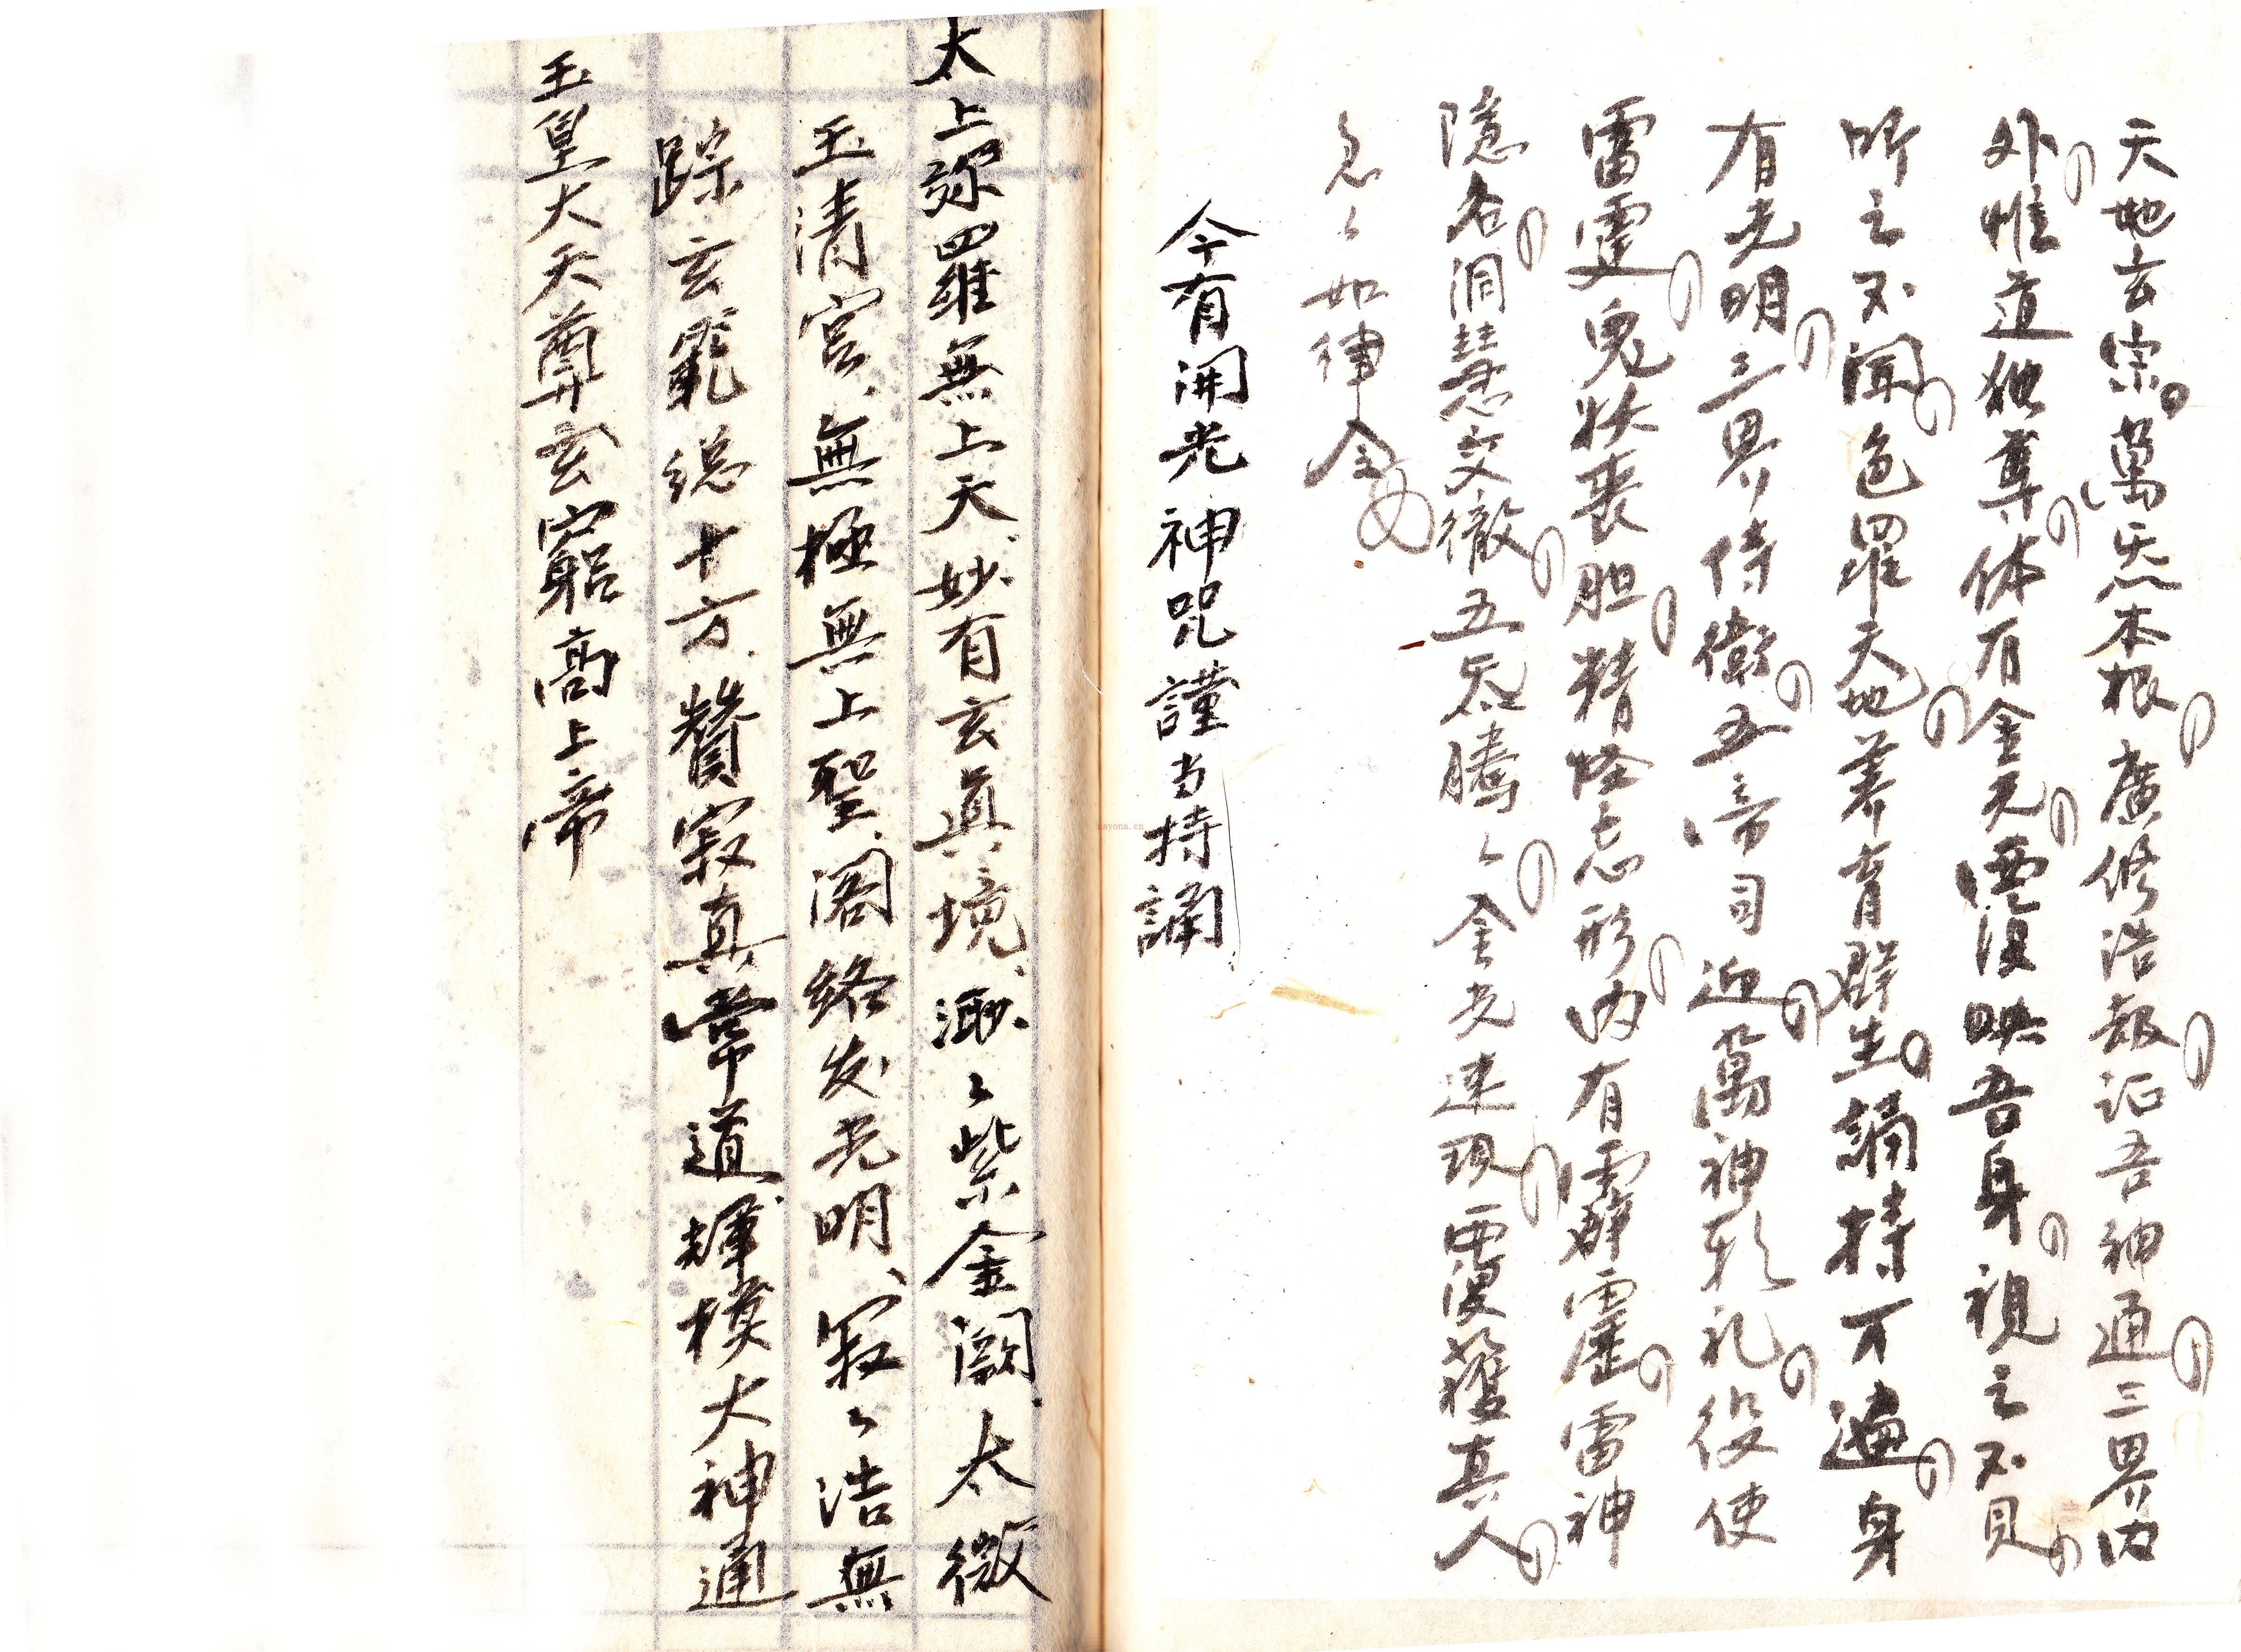 天地玄宗萬炁本根廣修浩劫证吾神通三界内
外惟道独尊体有金光覆映吾身視之不見
听之不聞包羅天地养育群生誦持万遍身
有光明三界侍衛五帝司迎萬神朝礼役使
雷霆鬼妖丧胆精怪忘形内有霹靂雷神
隱名洞慧交徹五炁騰々金光速現覆護真人
急々如律令
今有開光神咒謹当持誦
太上弥羅無上天妙有玄真境渺々紫金闕太微
玉清宮無極無上聖阁络发光明寂々浩無
踪玄範総十方贊寂真常道輝模大神通
玉皇大天尊玄窮高上帝
nayona.cn